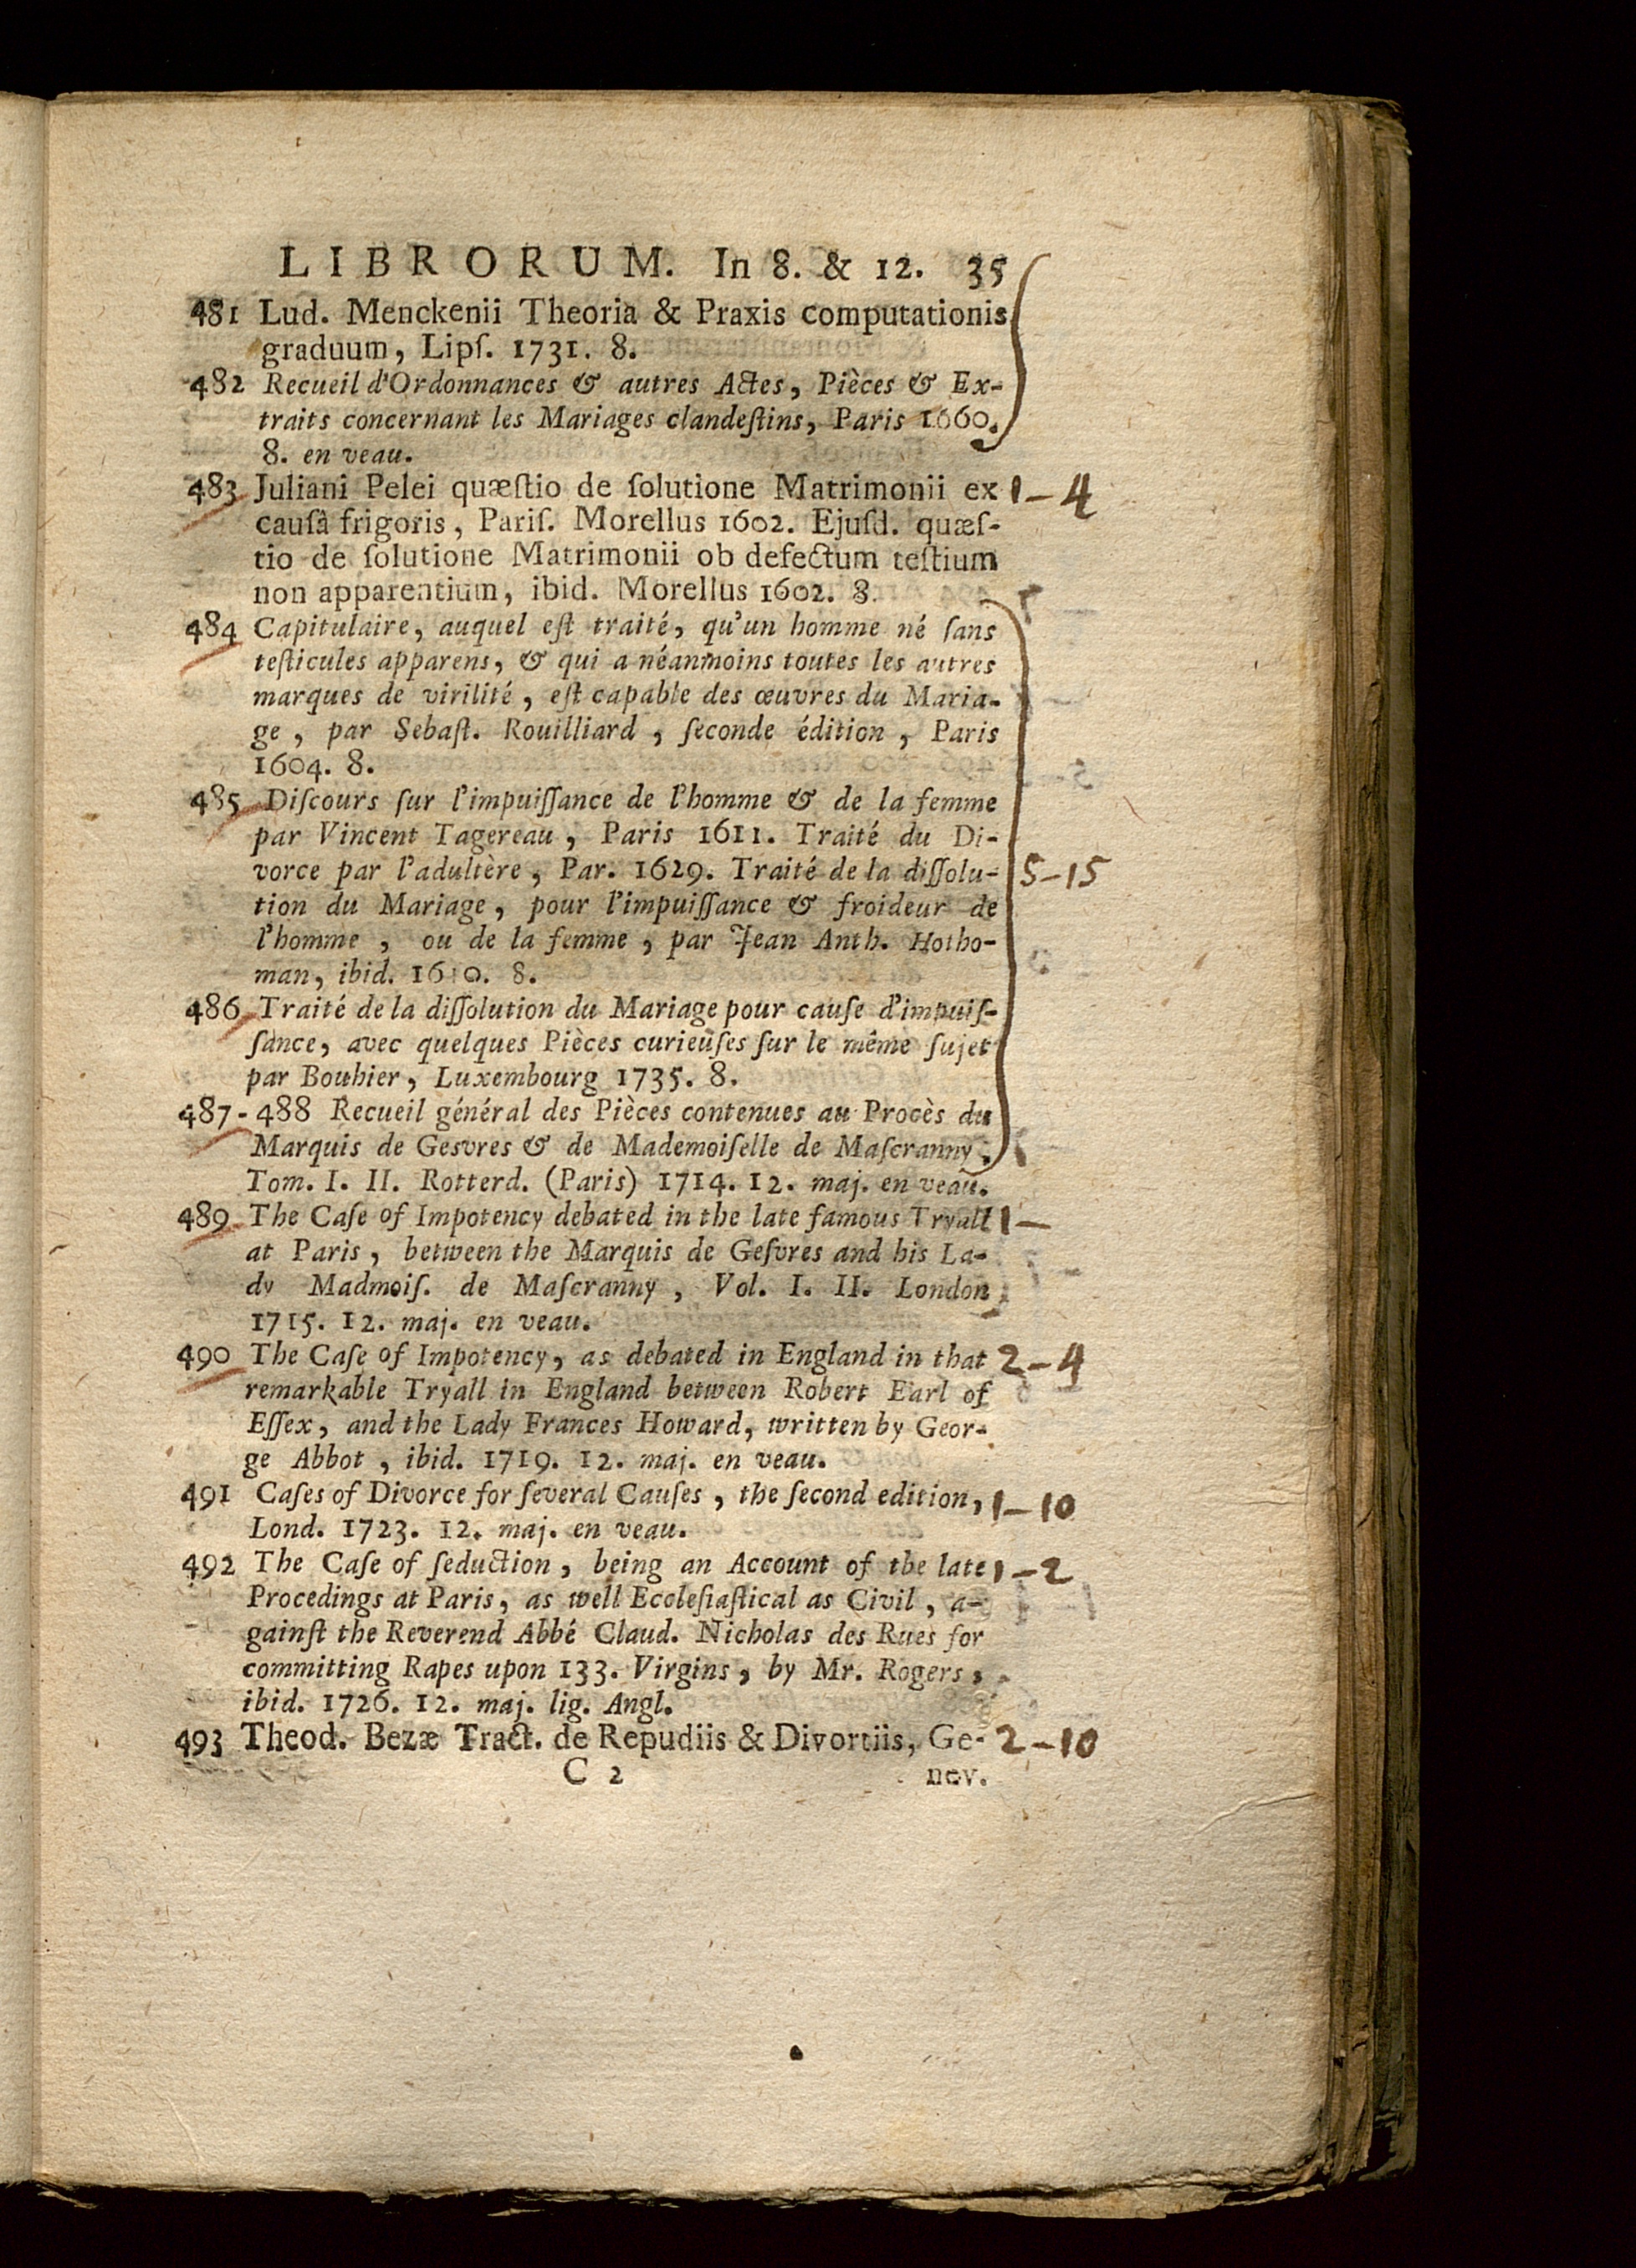 LIBRORUM. In 8. & 12. 35
481 Lud. Menckenii Theoria & Praxis computationis
graduum, Lipſ. 1731. 8.
482 Recueil d'Ordonnances & autres Actes, Pièces & Ex-
traits concernant les Mariages clandeſtins, Paris 1660.
8. en veau.
483 Juliani Pelei quæſtio de ſolutione Matrimonii ex 1-4
cauſâ frigoris, Pariſ. Morellus 1602. Ejuſd. quæſ-
tio de ſolutione Matrimonii ob defectum teſtium
non apparentium, ibid. Morellus 1602. 8.
484 Capitulaire, auquel eſt traité, qu'un homme né ſans
teſticules apparens, & qui a néanmoins toutes les autres
marques de virilité, eſt capable des œuvres du Maria-
ge, par Sebaſt. Rouilliard, ſeconde édition, Paris
1604. 8.
485 Diſcours ſur l'impuiſſance de l'homme & de la femme
par Vincent Tagereau, Paris 1611. Traité du Di-
vorce par l'adultère, Par. 1629. Traité de la diſſolu- 5-15
tion du Mariage, pour l'impuiſſance & froideur de
l'homme, ou de la femme, par Jean Anth. Hotho-
man, ibid. 1610. 8.
486 Traité de la diſſolution du Mariage pour cauſe d'impuiſ-
ſance, avec quelques Pièces curieuſes ſur le même ſujet
par Bouhier, Luxembourg 1735. 8.
487-488 Recueil général des Pièces contenues au Procès du
Marquis de Gesvres & de Mademoiſelle de Maſcranny,
Tom. I. II. Rotterd. (Paris) 1714. 12. maj. en veau.
489 The Caſe of Impotency debated in the late famous Tryall 1-
at Paris, between the Marquis de Geſvres and his La-
dy Madmoiſ. de Maſcranny, Vol. I. II. London
1715. 12. maj. en veau.
490 The Caſe of Impotency, as debated in England in that 2-4
remarkable Tryall in England between Robert Earl of
Eſſex, and the Lady Frances Howard, written by Geor-
ge Abbot, ibid. 1719. 12. maj. en veau.
491 Caſes of Divorce for ſeveral Cauſes, the ſecond edition, 1-10
Lond. 1723. 12. maj. en veau.
492 The Caſe of ſeduction, being an Account of the late 1-2
Procedings at Paris, as well Eccleſiaſtical as Civil, a-
gainſt the Reverend Abbé Claud. Nicholas des Rues for
committing Rapes upon 133. Virgins, by Mr. Rogers,
ibid. 1726. 12. maj. lig. Angl.
493 Theod. Bezæ Tract. de Repudiis & Divortiis, Ge- 2-10
C 2 nev.